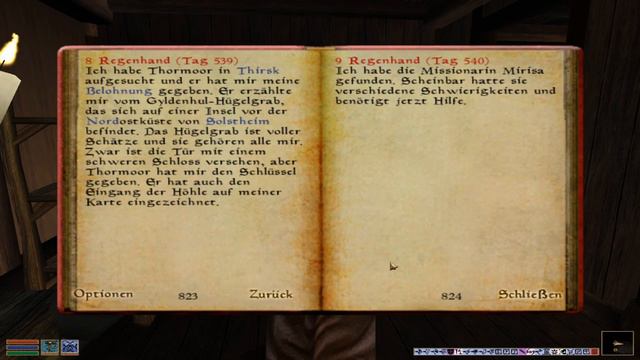 8 Regenhand (Tag 539)
Ich habe Thormoor in Thirsk
aufgesucht und er hat mir meine
Belohnung gegeben. Er erzählte
mir vom Gyldenhul-Hügelgrab,
das sich auf einer Insel vor der
Nordostküste von Solstheim
befindet. Das Hügelgrab ist voller
Schätze und sie gehören alle mir.
Zwar ist die Tür mit einem
schweren Schloss versehen, aber
Thormoor hat mir den Schlüssel
gegeben. Er hat auch den
Eingang der Höhle auf meiner
Karte eingezeichnet.
Optionen
823
Zurück
9 Regenhand (Tag 540)
Ich habe die Missionarin Mirisa
gefunden. Scheinbar hatte sie
verschiedene Schwierigkeiten und
benötigt jetzt Hilfe.
824
Schließen